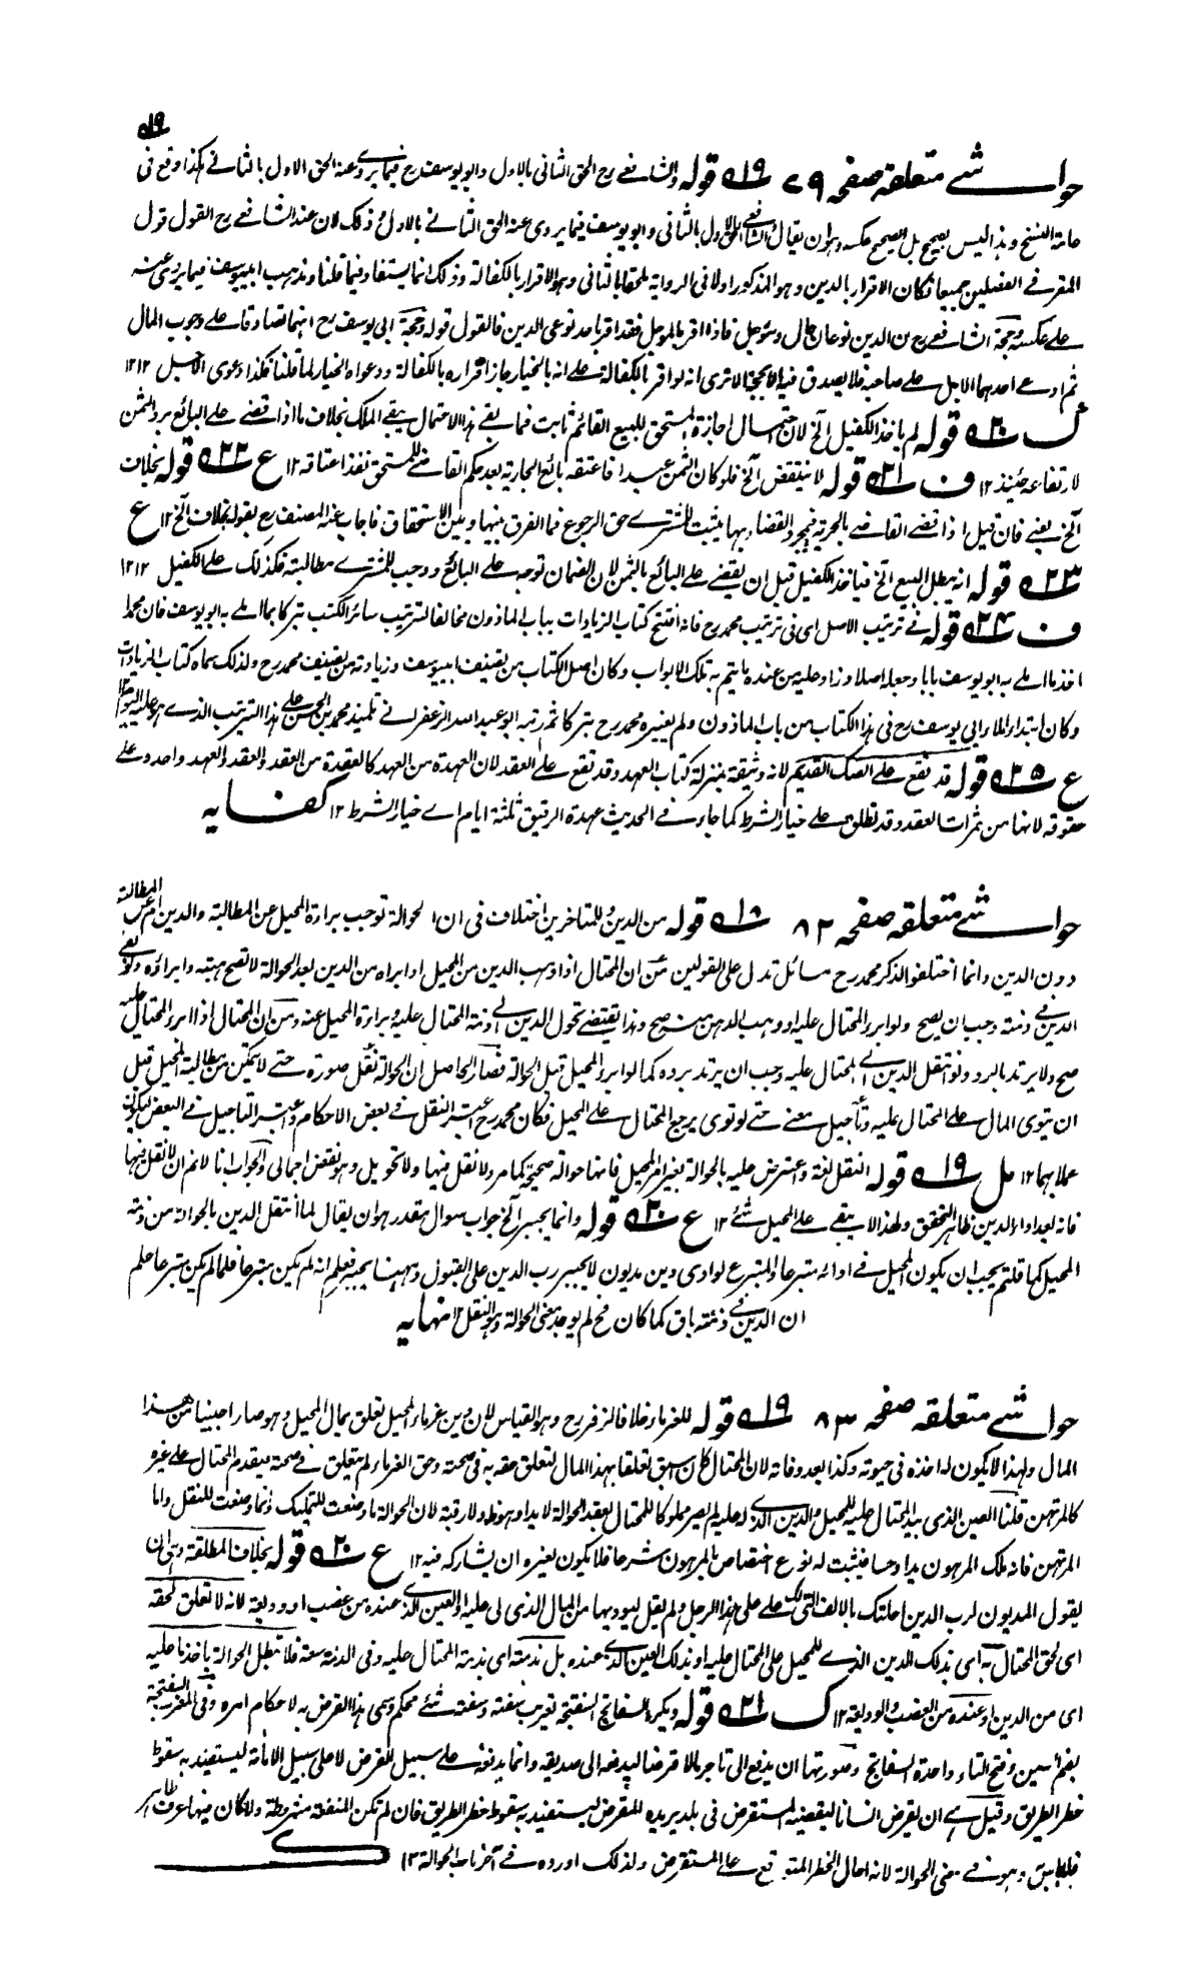 حواشی متعلقہ صفحہ ٧٩ ١٩ قولہ والشافعی رح الحق الثانی بالاول وابو یوسف رح فیما یروی عنہ الحق الاول بالثانی ہکذا وقع فی
عامۃ النسخ وہذا لیس بصحیح بل الصحیح عکسہ وہو ان یقال الشافعی الحق الاول بالثانی وابو یوسف فیما یروی عنہ الحق الثانی بالاول وذلک لان عند الشافعی رح القول قول
المقر فی الفصلین جمیعا فکان الاقرار بالدین وہو المذکور اولا فی الروایۃ ملحقا بالثانی وہو الاقرار بالکفالۃ وذلک انما یستفاد فیما قلنا ومذہب ابی یوسف فیما یروی عنہ
علی عکسہ وحجۃ الشافعی رح من الدین نوعان حال ومؤجل فاذا اقر بالمؤجل فقد اقر باحد نوعی الدین فالقول قولہ وحجۃ ابی یوسف رح انہما تصادقا علی وجوب المال
ثم ادعی احدہما الاجل علی صاحبہ فلا یصدق فیہ الا بحجۃ الا تری انہ لو اقر بالکفالۃ علی انہ بالخیار جاز اقرارہ بالکفالۃ ودعواہ الخیار لما قلنا فکذا دعوی الاجل ١٢١٢
ک ٢٠ قولہ لم یاخذ الکفیل الخ لان احتمال اجازۃ المستحق للبیع القائم ثابت فما بقی ہذا الاحتمال یبقی الملک بخلاف ما اذا قضی علی البائع برد الثمن
لارتفاعہ حینئذ ١٢ ف ٢١ قولہ لا ینتقض الخ فلو کان الثمن عبدا فاعتقہ بائع الجاریۃ بعد حکم القاضی للمستحق نفذ اعتاقہ ١٢ ع ٢٢ قولہ بخلاف
الخ یعنی فان قیل اذا قضی القاضی بالحریۃ فبمجرد القضاء بہا یثبت للمشتری حق الرجوع فما الفرق بینہا وبین الاستحقاق فاجاب عنہ المصنف رح بقولہ بخلاف الخ ١٢ ع
٢٣ قولہ انہ یبطل البیع الخ فیاخذ الکفیل قبل ان یقضی علی البائع بالثمن لان الضمان توجہ علی البائع ووجب للمشتری مطالبتہ فکذلک علی الکفیل ١٢١٢
ف ٢٤ قولہ فی ترتیب الاصل ای فی ترتیب محمد رح فانہ افتتح کتاب الزیادات بباب الماذون مخالفا لترتیب سائر الکتب تبرکا بما املی بہ ابو یوسف فان محمدا
اخذ ما املی بہ ابو یوسف بابا وجعلہ اصلا وزاد علیہ من عندہ ما یتم بہ تلک الابواب وکان اصل الکتاب من تصنیف ابی یوسف وزیادتہ من تصنیف محمد رح ولذلک سماہ کتاب الزیادات
وکان ابتداء املاء ابی یوسف رح فی ہذا الکتاب من باب الماذون ولم یغیرہ محمد رح تبرکا ثم رتبہ ابو عبد اللہ الزعفرانی تلمیذ محمد بن الحسن علی ہذا الترتیب الذی ہو علیہ الیوم ١٢
ع ٢٥ قولہ قد تقع علی الصک القدیم لانہ وثیقۃ بمنزلۃ کتاب العہد وقد تقع علی العقد لان العہدۃ من العہد کالعقدۃ من العقد والعقد والعہد واحد وعلی
حقوقہ لانہا من ثمرات العقد وقد تطلق علی خیار الشرط کما جاء فی الحدیث عہدۃ الرقیق ثلثۃ ایام ای خیار الشرط ١٢ کفایہ
حواشی متعلقہ صفحہ ٨٢ ١٨ قولہ من الدین وللمتاخرین اختلاف فی ان الحوالۃ توجب براءۃ المحیل عن المطالبۃ والدین ام عن المطالبۃ
دون الدین وانما اختلفوا لذکر محمد رح مسائل تدل علی القولین من ان المحتال اذا وہب الدین من المحیل او ابراہ من الدین بعد الحوالۃ لا تصح ہبتہ وابراؤہ ولو بقی
الدین فی ذمتہ وجب ان یصح ولو ابرأ المحتال علیہ او وہب الدین منہ صح وہذا یقتضی تحول الدین الی ذمۃ المحتال علیہ وبراءۃ المحیل عنہ ومن ان المحتال اذا ابرأ المحتال علیہ
صح ولا یرتد بالرد ولو انتقل الدین الی المحتال علیہ وجب ان یرتد بردہ کما لو ابرأ المحیل قبل الحوالۃ فصار الحاصل ان الحوالۃ نقل صورۃ حتی لا یتمکن من مطالبۃ المحیل قبل
ان یتوی المال علی المحتال علیہ وتاجیل معنی حتی لو توی یرجع المحتال علی المحیل فکان محمد رح اعتبر النقل فی بعض الاحکام واعتبر التاجیل فی البعض لیکون
عملا بہما ١٢ مل ١٩ قولہ النقل لغۃ واعترض علیہ بالحوالۃ بغیر امر المحیل فانہا حوالۃ صحیحۃ کما مر ولا نقل فیہا ولا تحویل وہو نقض اجمالی والجواب انا لا نم ان لا نقل فیہا
فانہ بعد اداء الدین ظاہر التحقق ولہذا لا یبقی علی المحیل شئ ١٢ ع ٢٠ قولہ وانما یجبر الخ جواب سوال مقدر ہو ان یقال لما انتقل الدین بالحوالۃ من ذمۃ
المحیل کما قلتم یجب ان یکون المحیل فی ادائہ متبرعا والمتبرع لو ادی دین مدیون لا یجبر رب الدین علی القبول وہہنا یجبر فعلم انہ لم یکن متبرعا فلما لم یکن متبرعا علم
ان الدین فی ذمتہ باق کما کان فح لم یوجد معنی الحوالۃ وہو النقل ١٢ نہایہ
حواشی متعلقہ صفحہ ٨٣ ١٩ قولہ للغرماء خلافا لزفر رح وہو القیاس لان دین غرماء المحیل تعلق بمال المحیل وہو صار اجنبیا من ہذا
المال ولہذا لا یکون لہ اخذہ فی حیوتہ وکذا بعد وفاتہ لان المحتال کان اسبق تعلقا بہذا المال لتعلق حقہ بہ فی صحتہ وحق الغرماء لم یتعلق فی صحتہ فیقدم المحتال علی غیرہ
کالمرتہن قلنا العین الذی بید المحتال علیہ للمحیل والدین الذی لہ علیہ لم یصر مملوکا للمحتال بعقد الحوالۃ لا یدا وہو ظ ولا رقبۃ لان الحوالۃ ما وضعت للتملیک وانما وضعت للنقل واما
المرتہن فانہ ملک المرہون یدا وحبسا فیثبت لہ نوع اختصاص بالمرہون شرعا فلا یکون لغیرہ ان یشارکہ فیہ ١٢ ع ٢٠ قولہ بخلاف المطلقۃ وہی ان
یقول المدیون لرب الدین احلتک بالالف التی لک علی علی ہذا الرجل ولم یقل لیودیہا من المال الذی لی علیہ او العین الذی عندہ من غصب او ودیعۃ لانہ لا تعلق لحقہ
ای لحق المحتال بہ ای بذلک الدین الذی للمحیل علی المحتال علیہ او بذلک العین الذی عندہ بل بذمتہ ای بذمۃ المحتال علیہ وفی الذمۃ سعۃ فلا تبطل الحوالۃ باخذ ما علیہ
ای من الدین او عندہ من الغصب والودیعۃ ١٢ ک ٢١ قولہ ویکرہ السفاتج السفتجۃ تعریب سفتہ وسفتہ شئ محکم وسمی ہذا القرض بہ لاحکام امرہ وفی المغرب السفتجۃ
بضم السین وفتح التاء واحدۃ السفاتج وصورتہا ان یدفع الی تاجر مالا قرضا لیدفعہ الی صدیقہ وانما یدفعہ علی سبیل القرض لا علی سبیل الامانۃ لیستفید بہ سقوط
خطر الطریق وقیل ہی ان یقرض انسانا لیقضیہ المستقرض فی بلد یریدہ المقرض لیستفید بہ سقوط خطر الطریق فان لم تکن المنفعۃ مشروطۃ ولا کان فیہا عرف ظاہر
فلا باس وہو فی معنی الحوالۃ لانہ احال الخطر المتوقع علی المستقرض ولذلک اوردہ فی آخر باب الحوالۃ ١٢